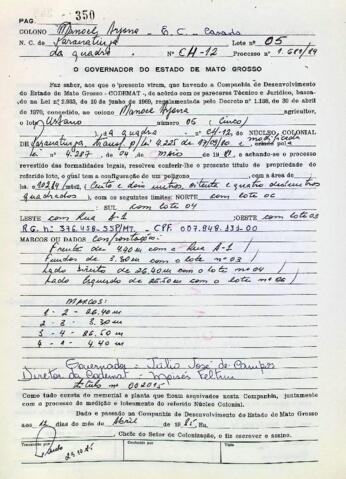 PAG. 350
COLONO Manoel Arjona - E. C. - Casado
N. C. de Paranatinga Lote nº 05
da quadra Nº CH-12 Processo nº 1.689/84
O GOVERNADOR DO ESTADO DE MATO GROSSO
Faz saber, aos que o presente virem, que havendo a Companhia de Desenvolvimento
do Estado de Mato Grosso - CODEMAT -, de acordo com os pareceres Técnico e Jurídico, bascando,
na Lei nº 2.933, de 10 de junho de 1969, regulamentada pelo Decreto nº 1.138, de 30 de abril
de 1970, concedido, ao colono Manoel Arjona agricultor,
o lote Urbano número 05 (cinco)
da quadra nº CH-12, do NÚCLEO COLONIAL
DE Paranatinga, p/ lei 4.225 de 07/09/80 e modificada pela
lei nº 4.287, de 04 de maio de 1981, e achando-se o processo
revestido das formalidades legais, resolveu conferir-lhe o presente título de propriedade do
referido lote, o qual tem a configuração de um polígono com a área de
ha. 102,84 m² (Cento e dois metros, oitenta e quatro decímetros
quadrados), com os seguintes limites: NORTE com lote 06
: SUL com lote 04
LESTE com Rua A-1 :OESTE com lote 03
R.G. nº 376.458-SSP/MT. - CPF. 007.848.131-00
MARCOS OU DATAS Confrontação:
Frente de 4.40 m com a Rua A-1
Fundos de 3.30 m com o lote nº 03
Lado Direito de 26.40 m com o lote nº 04
Lado Esquerdo de 26.50 m com o lote nº 06
MARCOS:
1 - 2 - 26.40 m
2 - 3 - 3.30 m
3 - 4 - 26.50 m
4 - 1 - 4.40 m
Governador - Júlio José de Campos
Diretor da Codemat - Moisés Feltrin
título nº 002015
Como tudo consta do memorial e planta que ficam arquivados nesta Companhia, juntamente
com o processo de medição e loteamento do referido Núcleo Colonial.
Dado e passado na Companhia de Desenvolvimento do Estado de Mato Grosso
aos 12 dias do mês de Abril de 1985. Eu,
Chefe do Setor de Colonização, o fiz escrever e assino.
Transcrito por Conferido por Visto
23.10.85